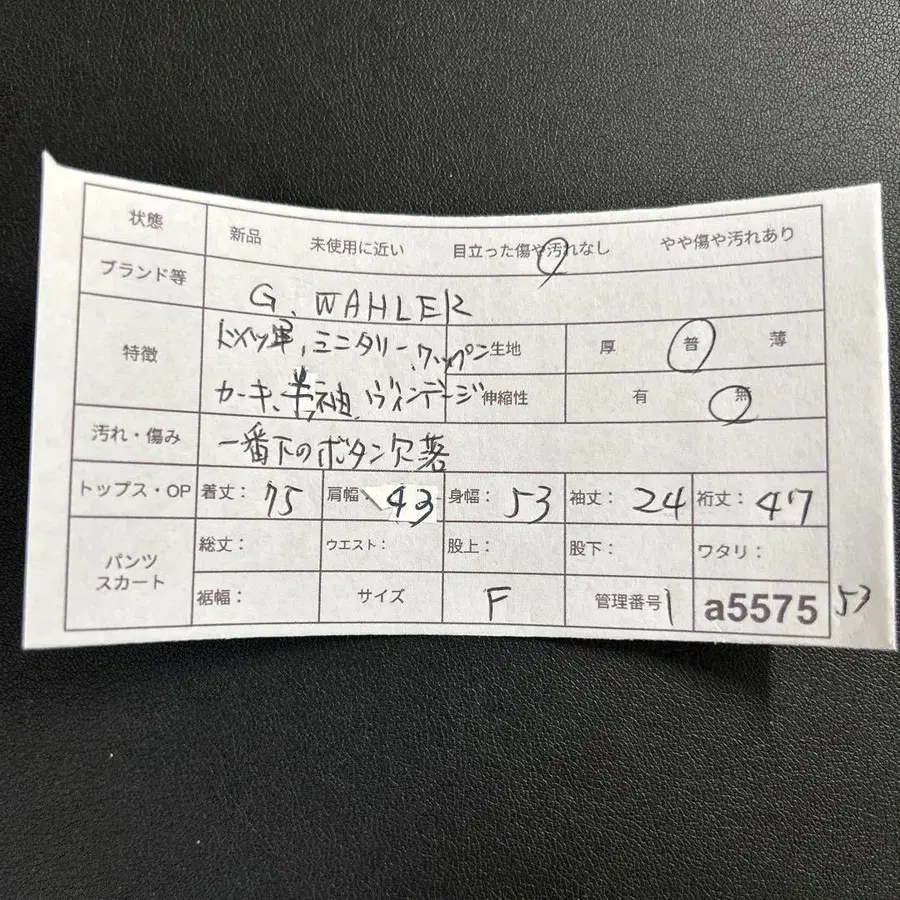 状態 新品 未使用に近い 目立った傷や汚れなし やや傷や汚れあり
ブランド等 G. WAHLER
特徴 ドイツ軍、ミニタリー、ワッペン 生地 厚 普 薄
カーキ、半袖、ヴィンテージ 伸縮性 有 無
汚れ・傷み 一番下のボタン欠落
トップス・OP 着丈: 75 肩幅: 43 身幅: 53 袖丈: 24 裄丈: 47
パンツ スカート 総丈: ウエスト: 股上: 股下: ワタリ:
裾幅: サイズ F 管理番号 1 a5575 53